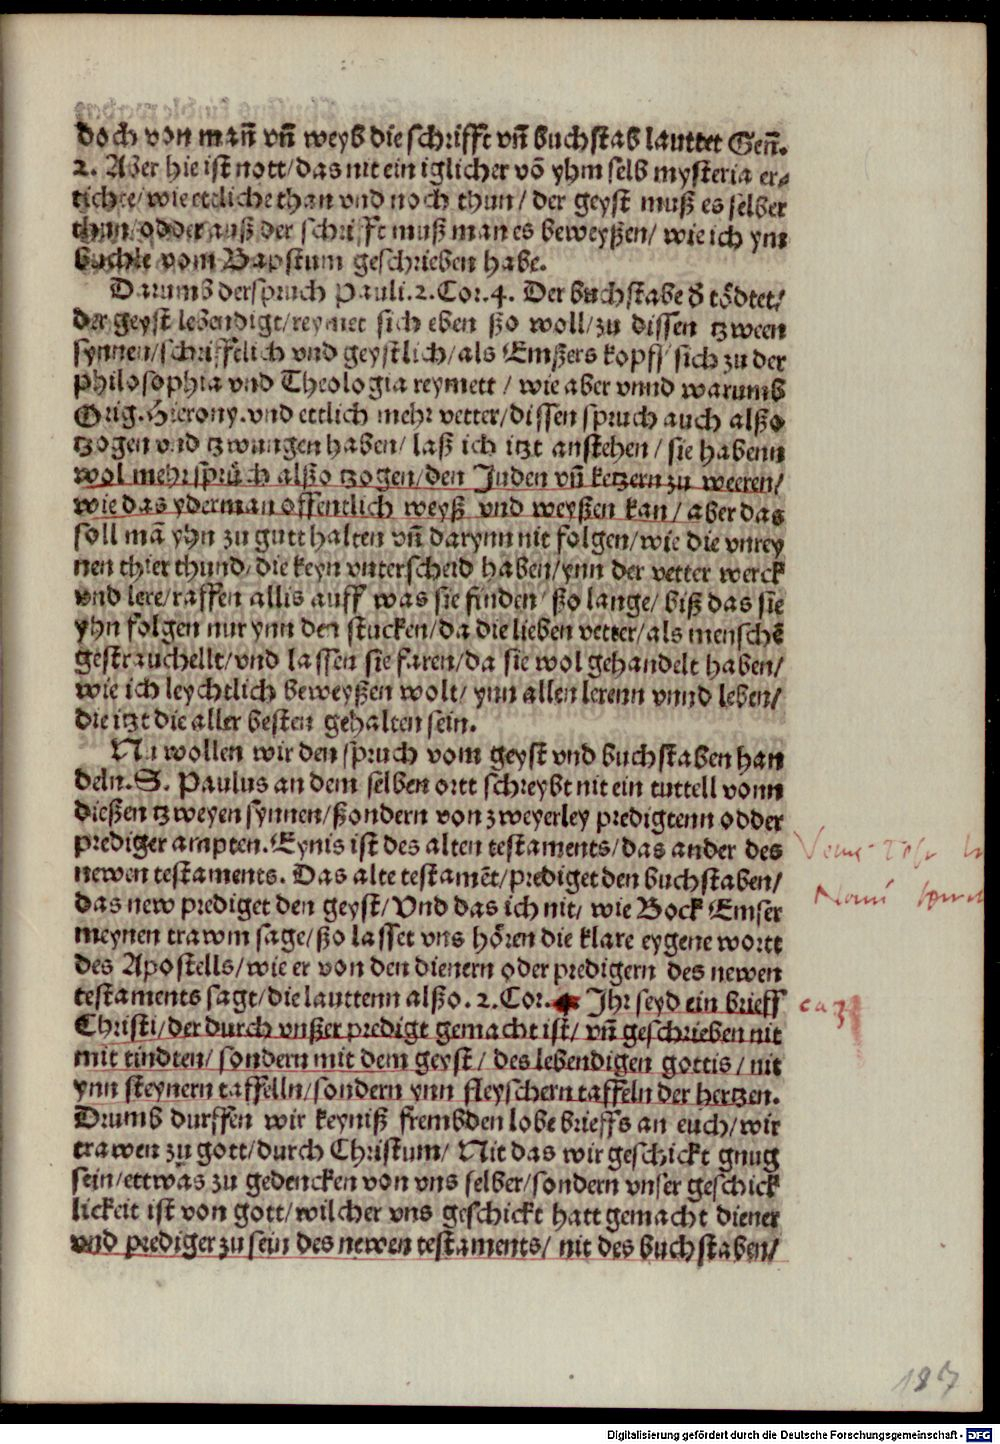 doch von mañ vñ weyb die schrifft vñ buchstab lauttet Geñ.
2. Aber hie ist nott/das nit ein iglicher võ yhm selb mysteria er⸗
tichte/wie ettliche than vnd noch thun/ der geyst muß es selber
thun/odder auß der schrifft muß man es beweyßen/ wie ich ym
buchle vom Bapstum geschrieben habe.
Darumb der spruch Pauli.2.Cor.4. Der buchstabe d̕ tödtet/
der geyst lebendigt/reymet sich eben ßo woll/zu dissen tzween
synnen/schrifftlich vnd geystlich/als Emßers kopff sich zu der
philosophia vnd Theologia reymett / wie aber vnnd warumb
Orig.Hierony.vnd ettlich mehr vetter/dissen spruch auch alßo
tzogen vnd tzwungen haben/ laß ich itzt anstehen/ sie habenn
wol mehr sprüch alßo tzogen/den Juden vñ ketzern zu weeren/
wie das yderman offentlich weyß vnd weyßen kan/ aber das
soll mã yhn zu gutt halten vñ darynn nit folgen/wie die vnrey
nen thier thund/die keyn vnterscheid haben/ynn der vetter werck
vnd lere/raffen allis auff was sie finden/ ßo lange/ biß das sie
yhn folgen nur ynn den stucken/da die lieben vetter/als menschẽ
gestrauchellt/vnd lassen sie faren/da sie wol gehandelt haben/
wie ich leychtlich beweyßen wolt/ ynn allen lerenn vnnd leben/
die itzt die aller besten gehalten sein.
Nu wollen wir den spruch vom geyst vnd buchstaben han
deln.S. Paulus an dem selben ortt schreybt nit ein tuttell vonn
dießen tzweyen synnen/ßondern von zweyerley predigtenn odder
prediger ampten.Eynis ist des alten testaments/das ander des
newen testaments. Das alte testamẽt/prediget den buchstaben/
das new prediget den geyst/Vnd das ich nit/ wie Bock Emser
meynen trawm sage/ßo lasset vns hören die klare eygene wortt
des Apostells/wie er von den dienern oder predigern des newen
testaments sagt/die lauttenn alßo.2.Cor.4. Jhr seyd ein brieff
Christi/der durch vnßer predigt gemacht ist/ vñ geschrieben nit
mit tindten/ sondern mit dem geyst/ des lebendigen gottis/ nit
ynn steynern taffelln/sondern ynn fleyschern taffeln der hertzen.
Drumb durffen wir keyniß frembden lobe brieffs an euch/wir
trawen zu gott/durch Christum/ Nit das wir geschickt gnug
sein/ettwas zu gedencken von vns selber/sondern vnser geschick
lickeit ist von gott/wilcher vns geschickt hatt gemacht diener
vnd prediger zu sein des newen testaments/ nit des buchstaben/
187
Digitalisierung gefördert durch die Deutsche Forschungsgemeinschaft - DFG